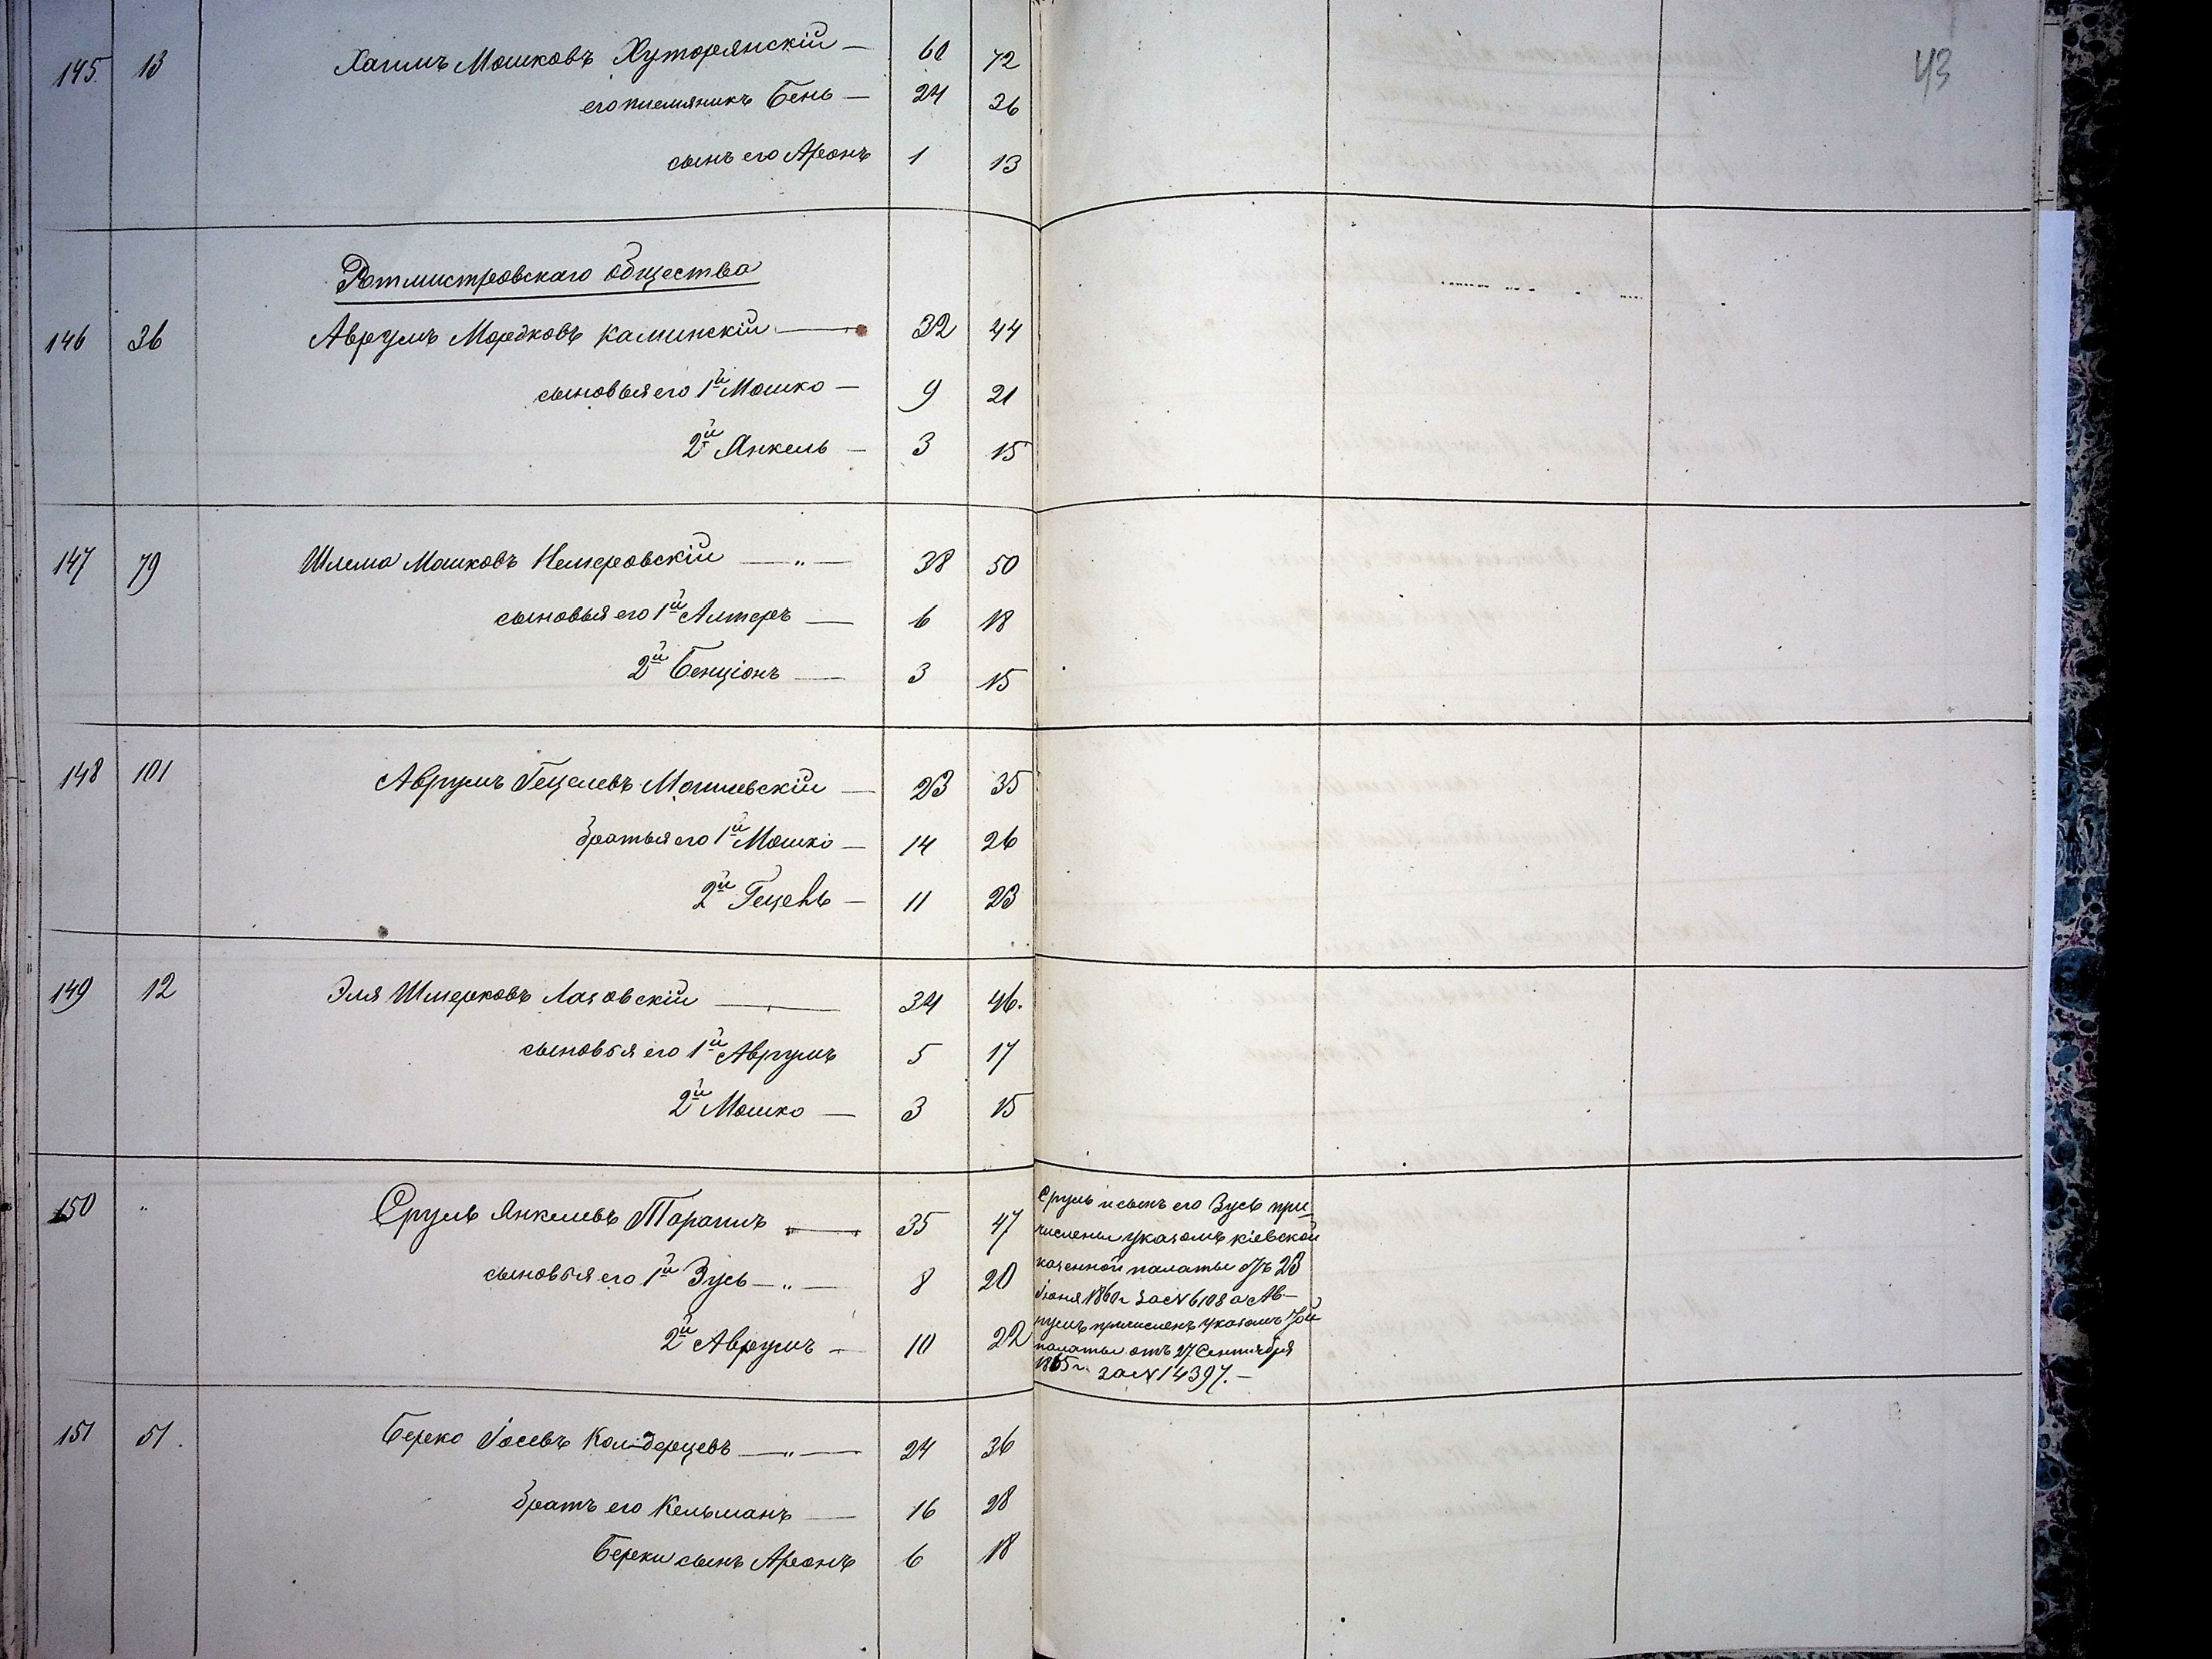 43
145. 13 Хаимъ Мошковъ Хуторянскій — 60 72
его племяникъ Бень — 24 36
сынъ его Аронъ 1 13
Ротмистровскаго общества
146 36 Аврумъ Мордковъ Каминскій — 32 44
сыновья его 1й Мошко — 9 21
2й Янкель — 3 15
147 79 Шлема Мошковъ Немеровскій — " — 38 50
сыновья его 1й Алтеръ — 6 18
2й Бенціонъ — 3 15
148 101 Аврумъ Гецелевъ Могилевскій — 23 35
братья его 1й Мошко — 14 26
2й Гецель — 11 23
149 12 Эля Шмерковъ Лазовскій — 34 46.
сыновья его 1й Аврумъ 5 17
2й Мошко — 3 15
150 " Сруль Янкелевъ Таранъ — 35 47
сыновья его 1й Зусь — " — 8 20
2й Аврумъ — 10 22
Сруль и сынъ его Зусь при-
числены указомъ кіевской
казенной палаты отъ 23
Іюня 1860 г. за № 6108 а Ав-
румъ причисленъ указомъ той
палаты отъ 27 Сентября
1865 г. за № 14397. —
151 51. Берко Іосевъ Кол-дерцевъ — " — 24 36
братъ его Кельманъ — 16 28
Берки сынъ Аронъ 6 18